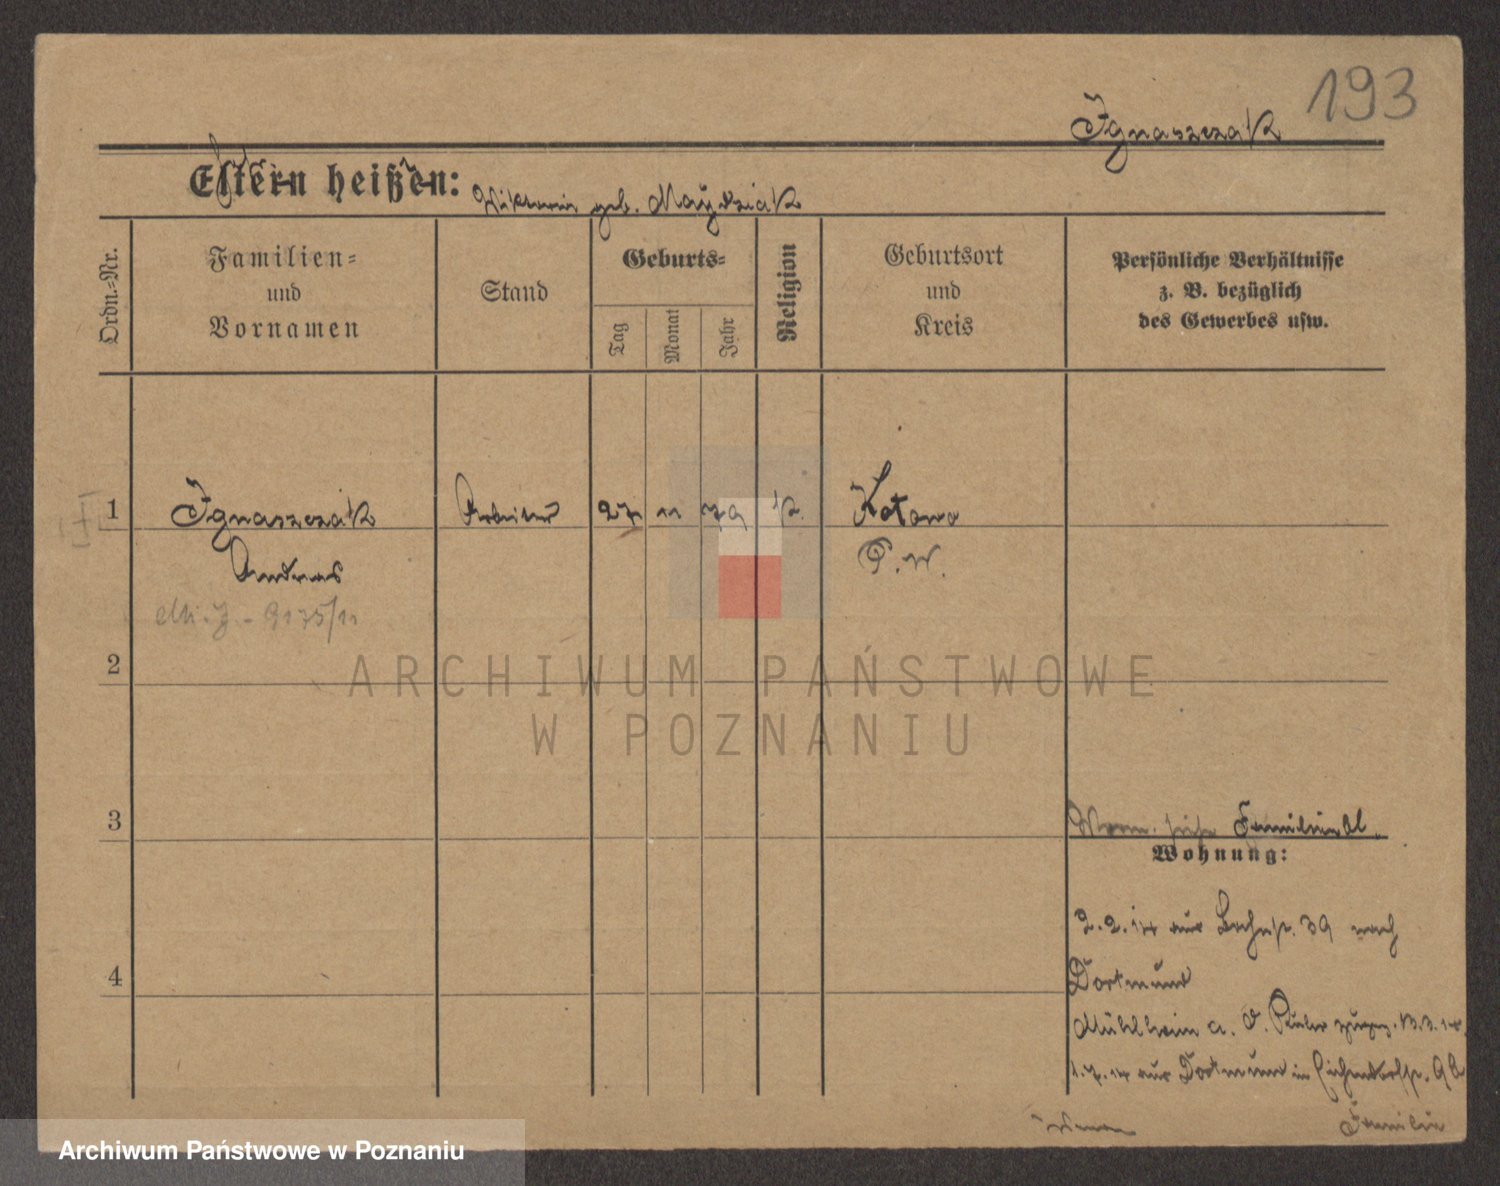 193
Ignaszczak
Eltern heißen:
geb. Maydziak
Ordn.-Nr.
Familien-
und
Vornamen
Stand
Geburts-
Tag
Monat
Jahr
Religion
Geburtsort
und
Kreis
Persönliche Verhältnisse
z. B. bezüglich
des Gewerbes usw.
1
Ignaszczak
Arbeiter
27
11
79
K.
Kotowo
Andreas
P. W.
2
ARCHIWUM PAŃSTWOWE
W POZNANIU
3
siehe Familienbl.
Wohnung:
2.2.14 aus 39 nach
4
Dortmund
Mühlheim a. d. Ruhr zugez. 13.3.14
1.7.14 aus Dortmund in Eichendorffstr. 9b
Familie
Archiwum Państwowe w Poznaniu